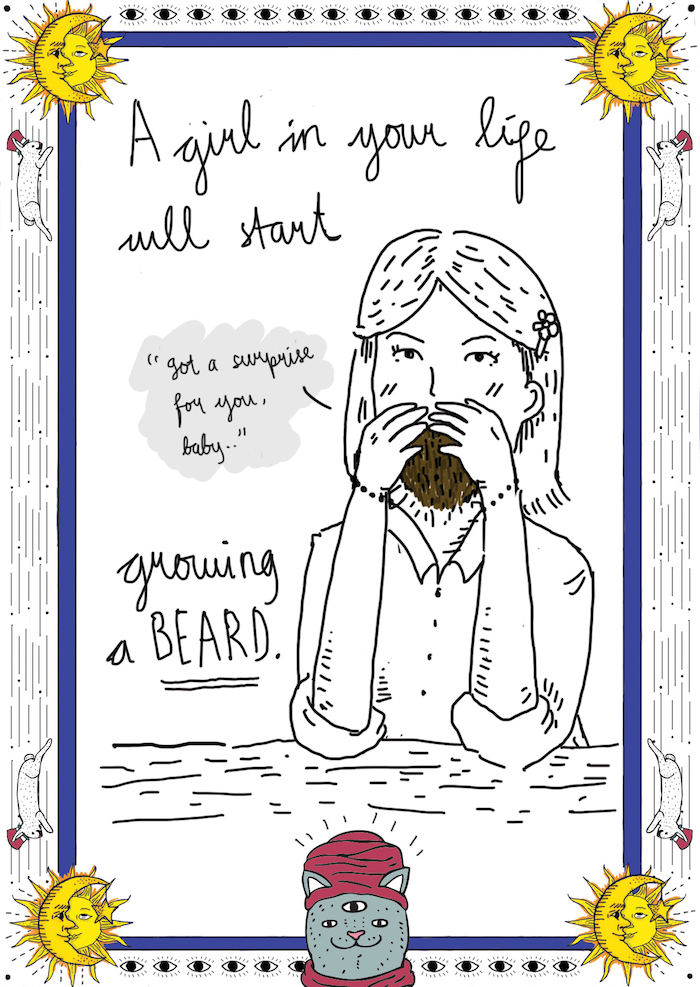 A girl in your life
will start
“got a surprise
for you,
baby..”
growing
a BEARD.